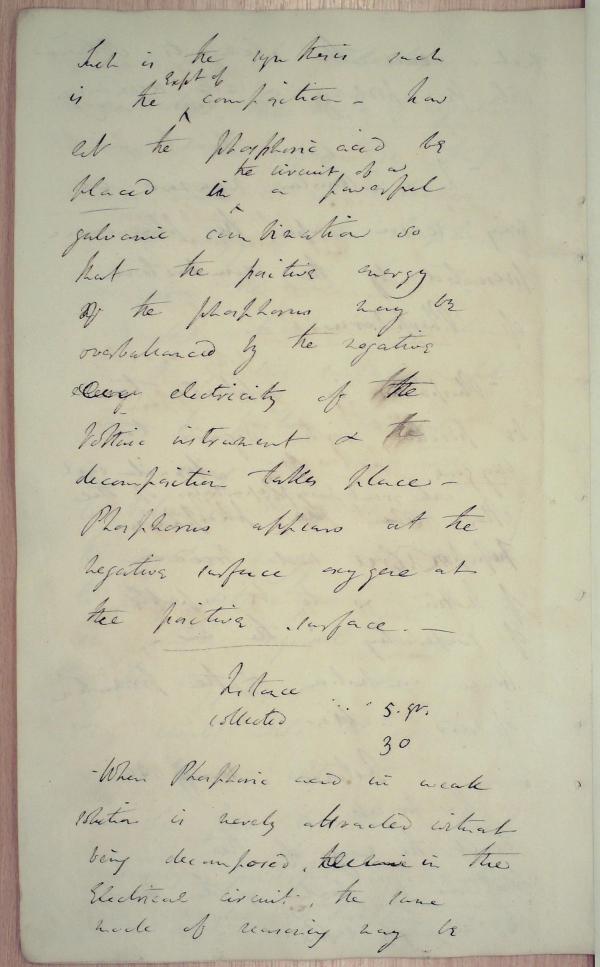 Such is the synthesis such
Expt of
is the composition - how
let the phosphoric acid be
the circuit of a
placed in a powerful
galvanic combination so
that the positive energy
of the phosphorus may be
overbalanced by the negative
electricity of the
Voltaic instrument & the
decomposition takes place -
Phosphorus appears at the
negative surface oxygene at
the positive surface. -
collected 5. gr.
30
- When Phosphoric acid in weak
solution is merely attracted without
being decomposed, in the
Electrical circuit, the same
mode of reasoning may be